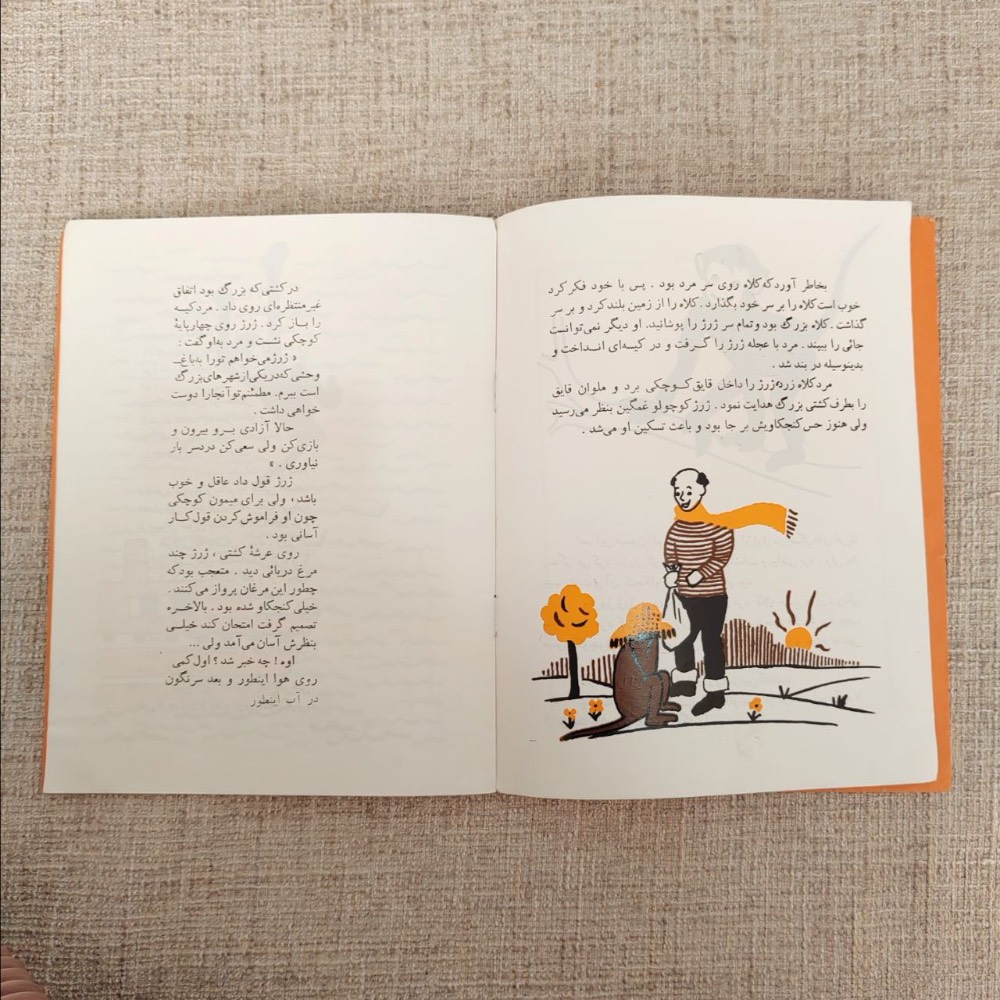 بخاطر آورد که کلاه روی سر مرد بود . پس با خود فکر کرد
خوب است کلاه را بر سر خود بگذارد . کلاه را از زمین بلند کرد و بر سر
گذاشت . کلاه بزرگ بود و تمام سر ژرژ را پوشانید . او دیگر نمی‌توانست
جائی را ببیند . مرد با عجله ژرژ را گرفت و در کیسه‌ای انداخت و
بدینوسیله در بند شد .
مرد کلاه زرد ژرژ را داخل قایق کوچکی برد و ملوان قایق
را بطرف کشتی بزرگ هدایت نمود . ژرژ کوچولو غمگین بنظر می‌رسید
ولی هنوز حس کنجکاویش بر جا بود و باعث تسکین او می‌شد .
در کشتی که بزرگ بود اتفاق
غیر منتظره‌ای روی داد . مرد کیسه
را باز کرد . ژرژ روی چهارپایهٔ
کوچکی نشست و مرد به او گفت :
« ژرژ می‌خواهم تو را به باغ
وحشی که در یکی از شهرهای بزرگ
است ببرم . مطمئنم تو آنجا را دوست
خواهی داشت .
حالا آزادی برو بیرون و
بازی کن ولی سعی کن دردسر بار
نیاوری . »
ژرژ قول داد عاقل و خوب
باشد، ولی برای میمون کوچکی
چون او فراموش کردن قول کار
آسانی بود .
روی عرشهٔ کشتی ، ژرژ چند
مرغ دریائی دید . متعجب بود که
چطور این مرغان پرواز می‌کنند .
خیلی کنجکاو شده بود . بالاخره
تصمیم گرفت امتحان کند خیلی
بنظرش آسان می‌آمد ولی ...
اوه ! چه خبر شد ؟ اول کمی
روی هوا اینطور و بعد سرنگون
در آب اینطور